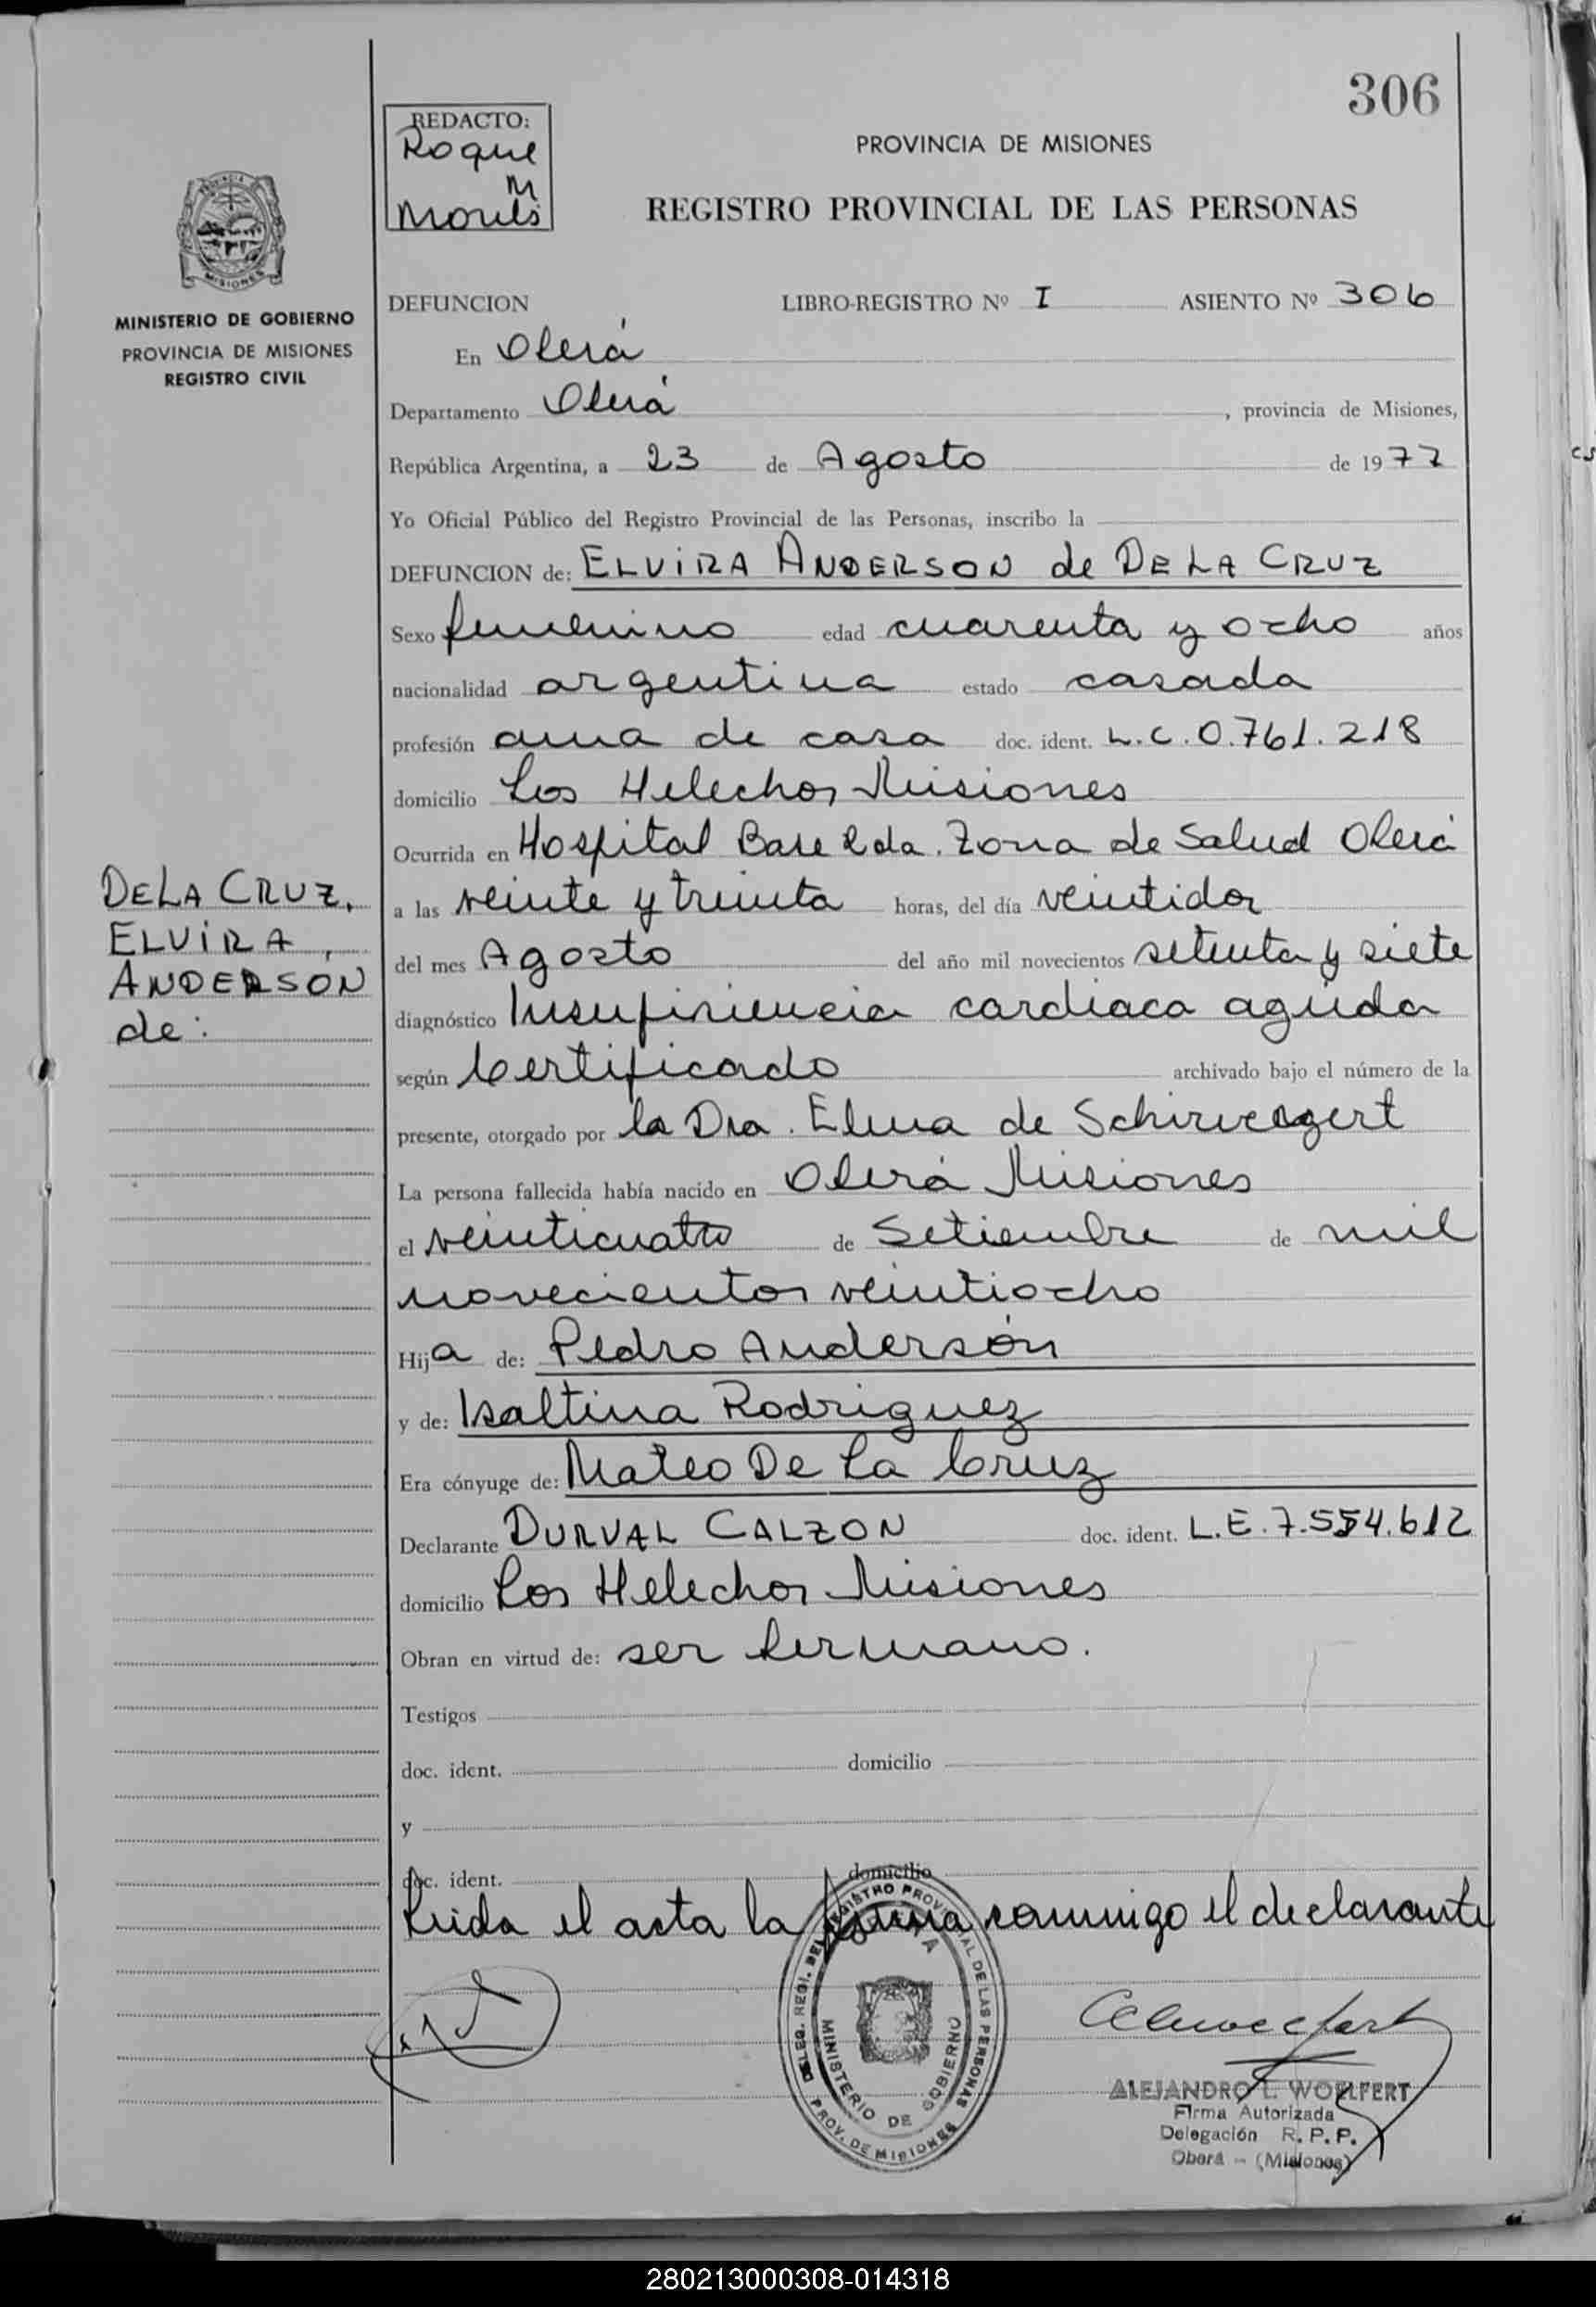 306
REDACTO:
Roque
M
PROVINCIA DE MISIONES
REGISTRO PROVINCIAL DE LAS PERSONAS
MISIONES
MINISTERIO DE GOBIERNO
PROVINCIA DE MISIONES
REGISTRO CIVIL
DEFUNCION LIBRO-REGISTRO Nº I ASIENTO Nº 306
En Oberá
Departamento Oberá, provincia de Misiones,
República Argentina, a 23 de Agosto de 1977
Yo Oficial Público del Registro Provincial de las Personas, inscribo la
DEFUNCION de: ELVIRA ANDERSON de DE LA CRUZ
Sexo femenino edad cuarenta y ocho años
nacionalidad argentina estado casada
profesión ama de casa doc. ident. L.C. 0.761.218
domicilio Los Helechos Misiones
Ocurrida en Hospital Base 2da. Zona de Salud Oberá
a las veinte y treinta horas, del día veintidos
del mes Agosto del año mil novecientos setenta y siete
diagnóstico Insuficiencia cardiaca aguda
según Certificado archivado bajo el número de la
presente, otorgado por la Dra. Elma de
La persona fallecida había nacido en Oberá Misiones
el veinticuatro de Setiembre de mil
novecientos veintiocho
Hija de: Pedro Andersón
y de: Isaltina Rodriguez
Era cónyuge de: Mateo De La Cruz
Declarante DURVAL CALZON doc. ident. L.E. 7.554.612
domicilio Los Helechos Misiones
Obran en virtud de: ser hermano.
Testigos
doc. ident. domicilio
y
doc. ident. domicilio
Leida el acta la firma conmigo el declarante
DE LA CRUZ,
ELVIRA,
ANDERSÓN
de:
DELEG. REGI. DEL REGISTRO PROVINCIAL DE LAS PERSONAS
MINISTERIO DE GOBIERNO
PROV. DE MISIONES
ALEJANDRO L. WOELFERT
Firma Autorizada
Delegación R. P. P.
Oberá - (Misiones)
280213000308-014318